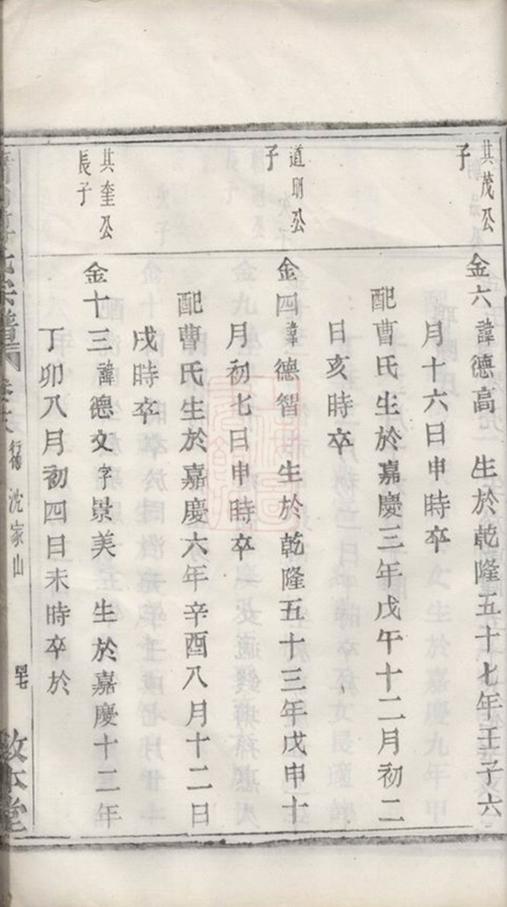 其茂公
子
金六諱德高 生於乾隆五十七年壬子六
月十六日申時卒
配曹氏生於嘉慶三年戊午十二月初二
日亥時卒
道明公
子
金四諱德智 生於乾隆五十三年戊申十
月初七日申時卒
配曹氏生於嘉慶六年辛酉八月十二日
戌時卒
其奎公
長子
金十三諱德文字景美 生於嘉慶十三年
丁卯八月初四日未時卒於
氏宗譜 沈家山
敦本堂